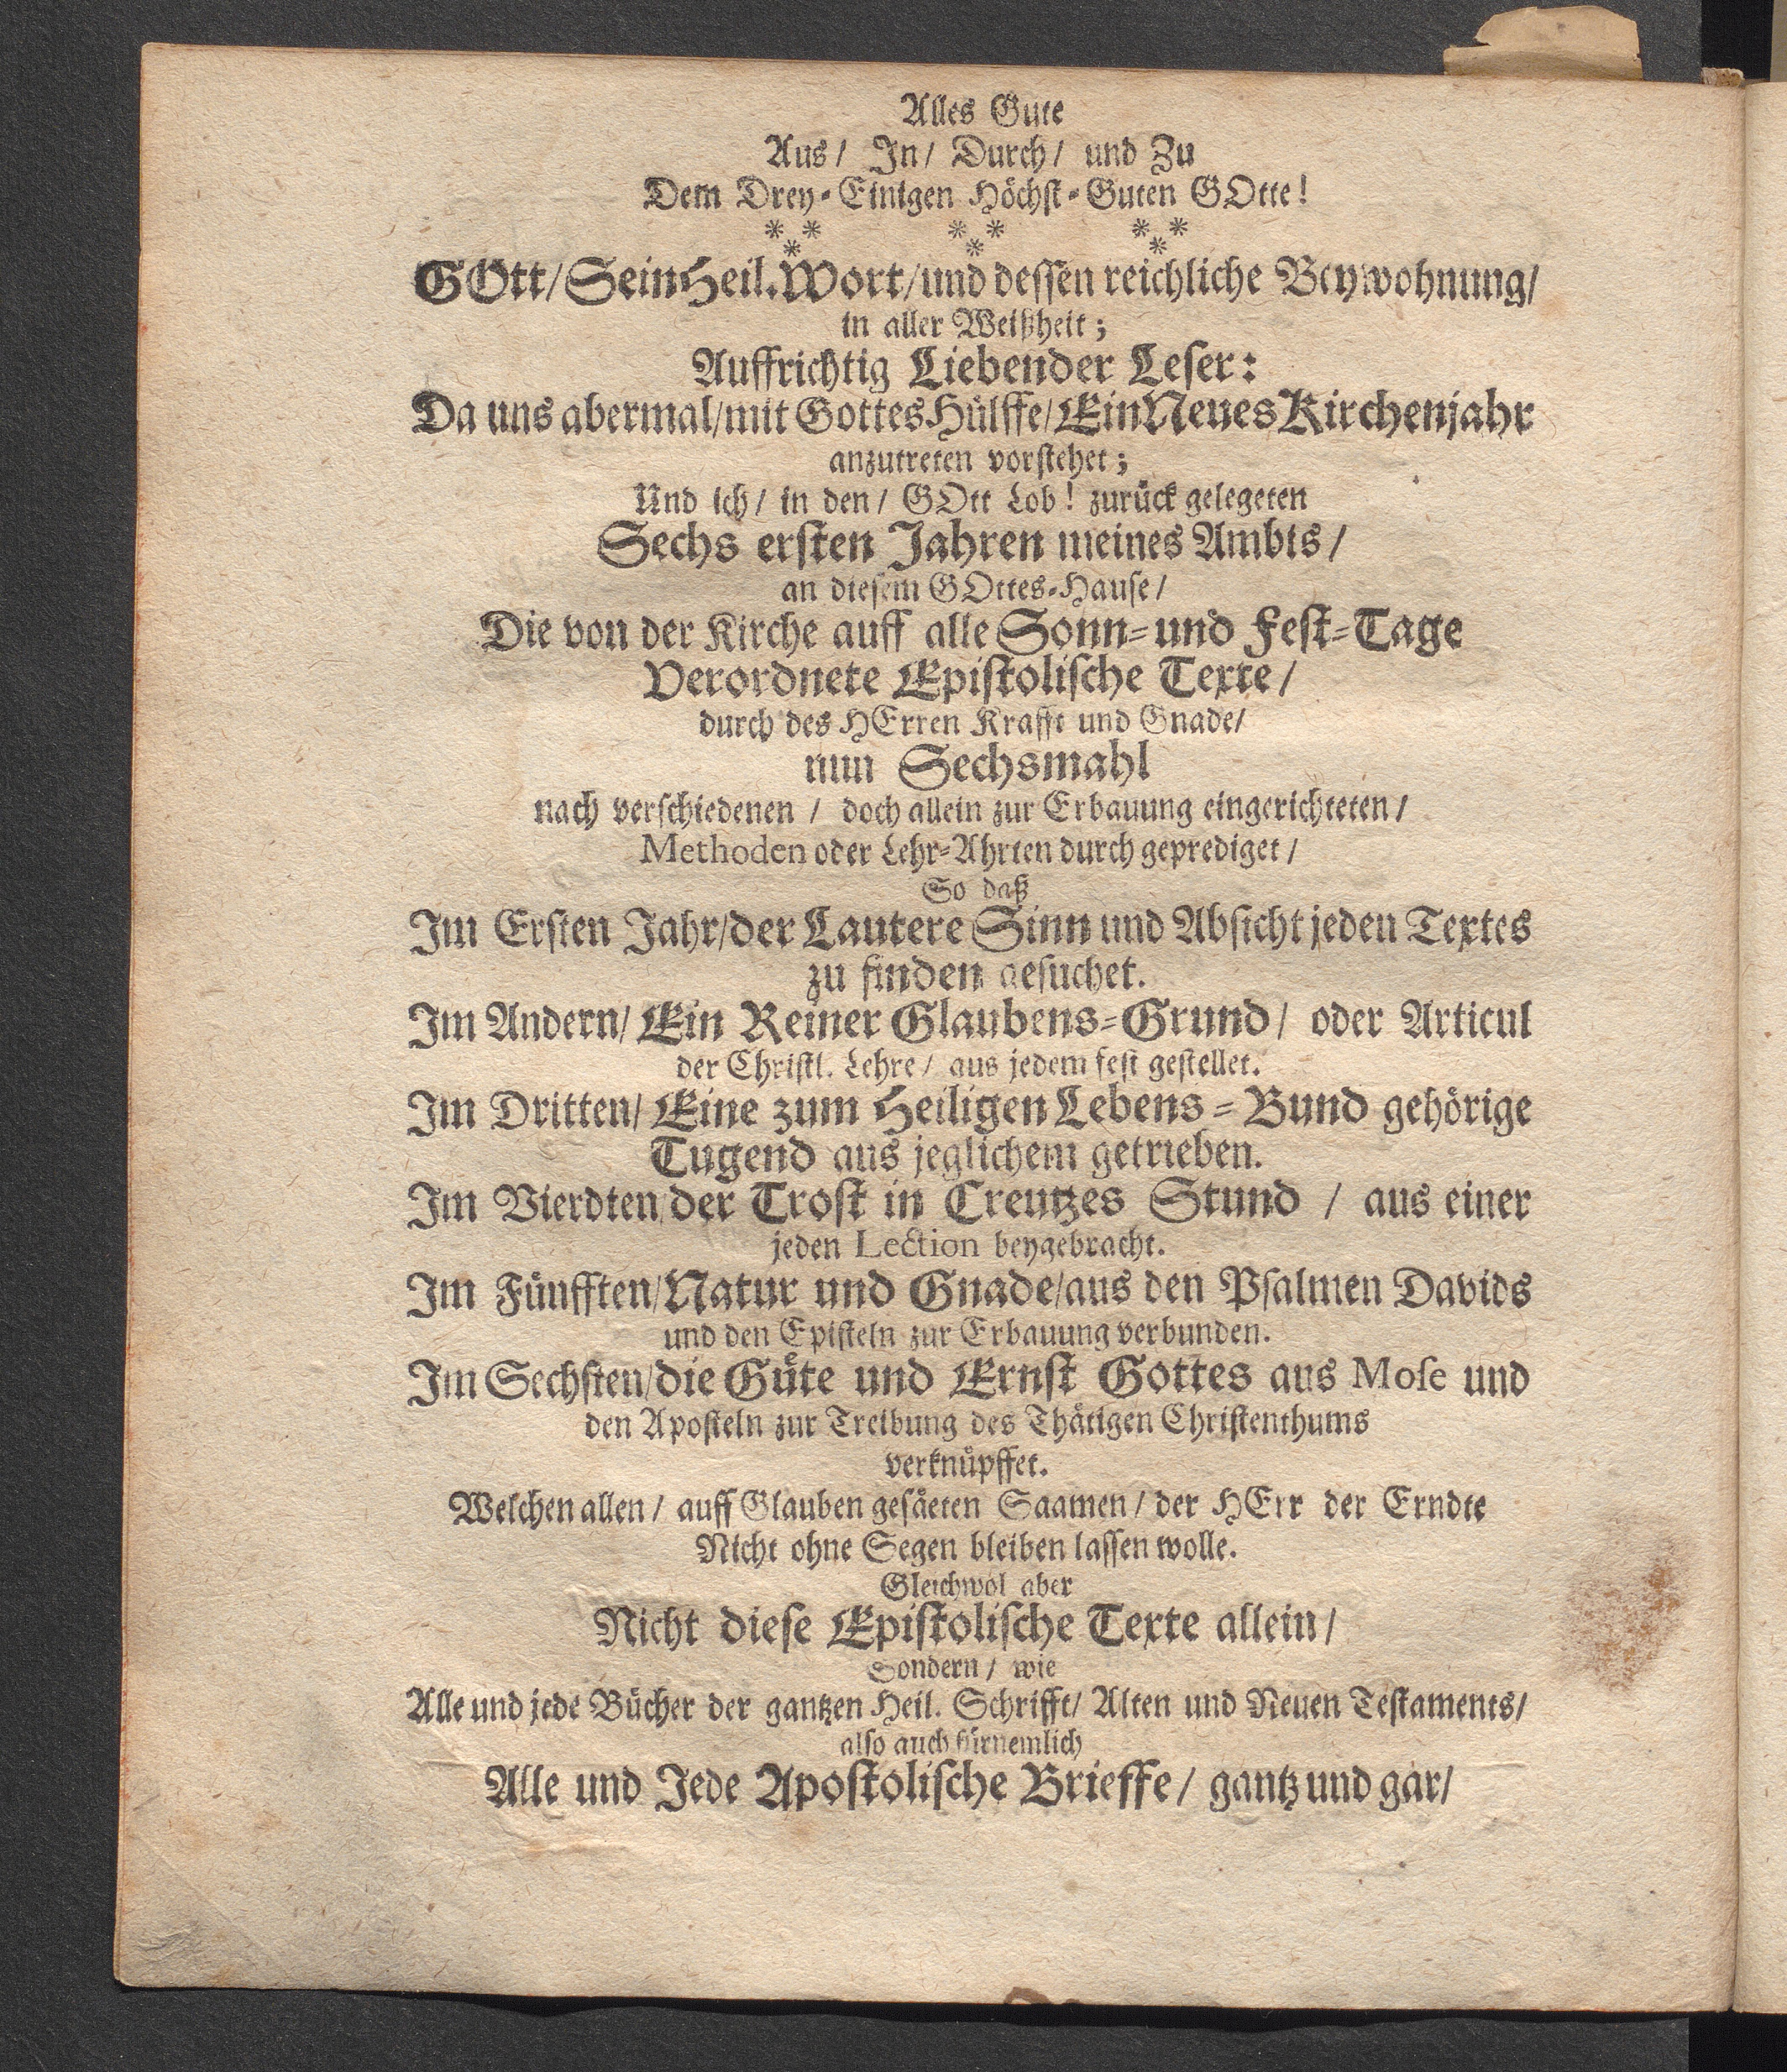 Alles Gute
Aus/ In/ Durch/ und Zu
Dem Drey-Einigen Höchst-Guten GOtte!
* * * * * *
* * *
GOtt/ Sein Heil. Wort/ und dessen reichliche Beywohnung/
in aller Weißheit;
Auffrichtig Liebender Leser:
Da uns abermal/ mit Gottes Hülffe/ Ein Neues Kirchenjahr
anzutreten vorstehet;
Und ich/ in den/ GOtt Lob! zurück gelegeten
Sechs ersten Jahren meines Ambts/
an diesem GOttes-Hause/
Die von der Kirche auff alle Sonn- und Fest-Tage
Verordnete Epistolische Texte/
durch des HErren Krafft und Gnade/
nun Sechsmahl
nach verschiedenen/ doch allein zur Erbauung eingerichteten/
Methoden oder Lehr-Ahrten durch geprediget/
So daß
Im Ersten Jahr/ der Lautere Sinn und Absicht jeden Textes
zu finden gesuchet.
Im Andern/ Ein Reiner Glaubens-Grund/ oder Articul
der Christl. Lehre/ aus jedem fest gestellet.
Im Dritten/ Eine zum Heiligen Lebens-Bund gehörige
Tugend aus jeglichem getrieben.
Im Vierdten/ der Trost in Creutzes Stund/ aus einer
jeden Lection beygebracht.
Im Fünfften/ Natur und Gnade/ aus den Psalmen Davids
und den Episteln zur Erbauung verbunden.
Im Sechsten/ die Güte und Ernst Gottes aus Mose und
den Aposteln zur Treibung des Thätigen Christenthums
verknüpffet.
Welchen allen/ auff Glauben gesäeten Saamen/ der HErr der Erndte
Nicht ohne Segen bleiben lassen wolle.
Gleichwol aber
Nicht diese Epistolische Texte allein/
Sondern/ wie
Alle und jede Bücher der gantzen Heil. Schrifft/ Alten und Neuen Testaments/
also auch fürnemlich
Alle und Jede Apostolische Brieffe/ gantz und gar/